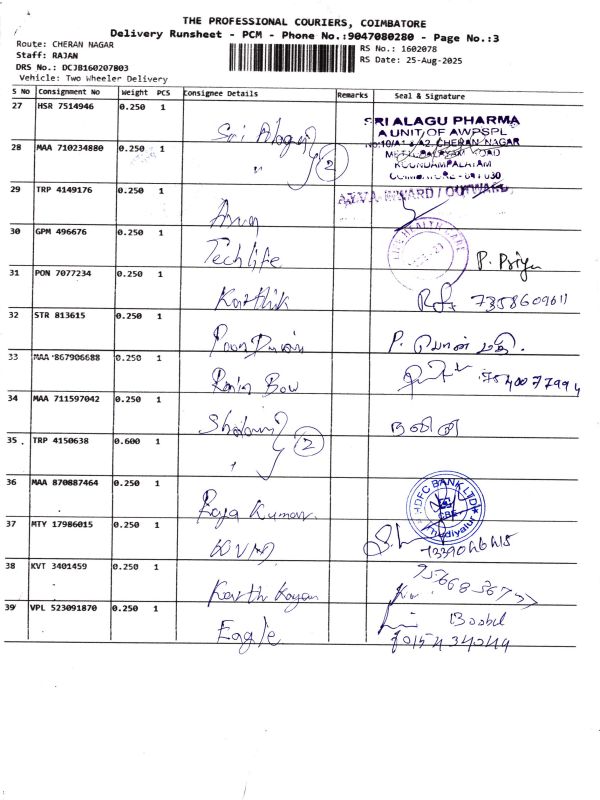 THE PROFESSIONAL COURIERS, COIMBATORE
Delivery Runsheet - PCM - Phone No.:9047080280 - Page No.:3
Route: CHERAN NAGAR
RS No.: 1602078
Staff: RAJAN
RS Date: 25-Aug-2025
DRS No.: DCJB160207803
Vehicle: Two Wheeler Delivery
S No Consignment No Weight PCS Consignee Details Remarks Seal & Signature
27 HSR 7514946 0.250 1 Sri Alagu
SRI ALAGU PHARMA
A UNIT OF AWPSPL
No:10/A1 & A2, CHERAN NAGAR
METTUPALAYAM ROAD
KOUNDAMPALAYAM
COIMBATORE - 641 030
28 MAA 710234880 0.250 1 " 2
INWARD / OUTWARD
29 TRP 4149176 0.250 1
30 GPM 496676 0.250 1 Techlife P. Priya
HEALTH CARE
31 PON 7077234 0.250 1 Karthik 7358609611
32 STR 813615 0.250 1 P. பொன் மதி.
33 MAA 867906688 0.250 1
34 MAA 711597042 0.250 1 2
35 TRP 4150638 0.600 1 "
36 MAA 870887464 0.250 1 Raja Kumar.
HDFC BANK LTD
37 MTY 17986015 0.250 1
38 KVT 3401459 0.250 1
39 VPL 523091870 0.250 1 Eagle